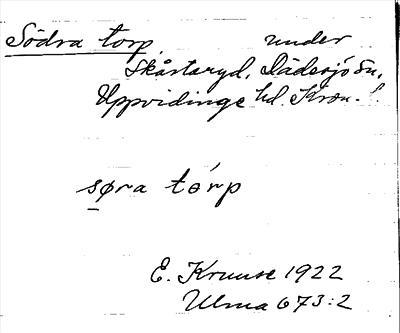 Södra torp, under
Skårtaryd, Dädesjö Sn,
Uppvidinge hd. Kron. l.
søra tórp
E. Kruuse 1922
Ulma 673:2